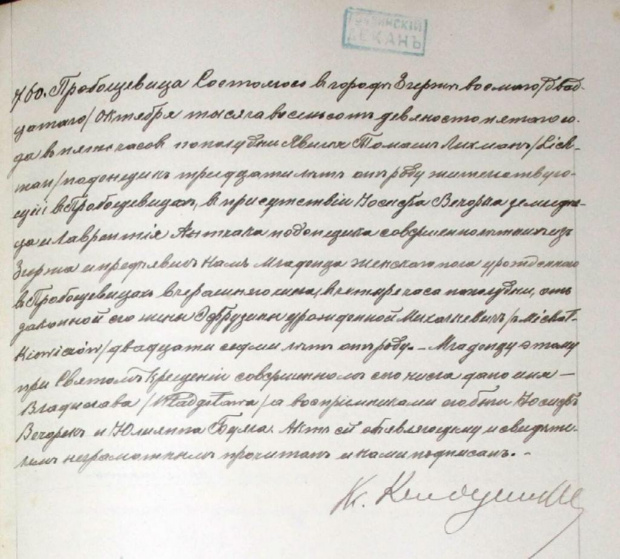 ЛЕЧИНСКІЙ
ДЕКАНЪ
760. Пробощевица Состоялось въ городѣ Згержѣ восьмаго/Двад-
цатаго/Октября тысяча восемьсотъ девяносто пятаго го-
да въ пять часовъ пополудни Явился Томашъ Лихманъ /Lich-
man/ поденщикъ тридцати лѣтъ отъ роду жительствую-
щій въ Пробощевицахъ, въ присутствіи Іосифа Вечорка земледѣль-
ца и Лаврентія поденщика совершеннолѣтнихъ изъ
Згержа и предъявилъ намъ младенца женскаго пола урожденнаго
въ Пробощевицахъ вчерашняго числа, въ четыре часа пополудни, отъ
законной его жены Эфрузины урожденной Михалкевичъ /z Michał-
kiewiczów/ двадцати седми лѣтъ отъ роду. – Младенцу этому
при Святомъ Крещеніи совершенномъ сего числа дано имя –
Владислава /Władysława/ а воспріемниками его были Іосифъ
Вечорекъ и Юліянна Бума. Актъ сей объявляющему и свидѣте-
лямъ неграмотнымъ прочитанъ и нами подписанъ. –
Кс.